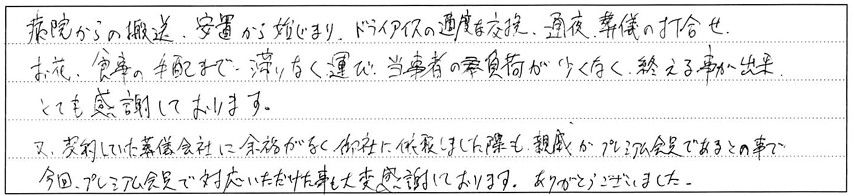 病院からの搬送、安置から始まり、ドライアイスの適度な交換、通夜、葬儀の打合せ、
お花、食事の手配まで、滞りなく運び、当事者の負荷が少くなく、終える事が出来、
とても感謝しております。
又、契約していた葬儀会社に余裕がなく御社に依頼しました際も、親戚がプレミアム会員であるとの事で
今回、プレミアム会員で対応いただけた事も大変感謝しております。ありがとうございました。